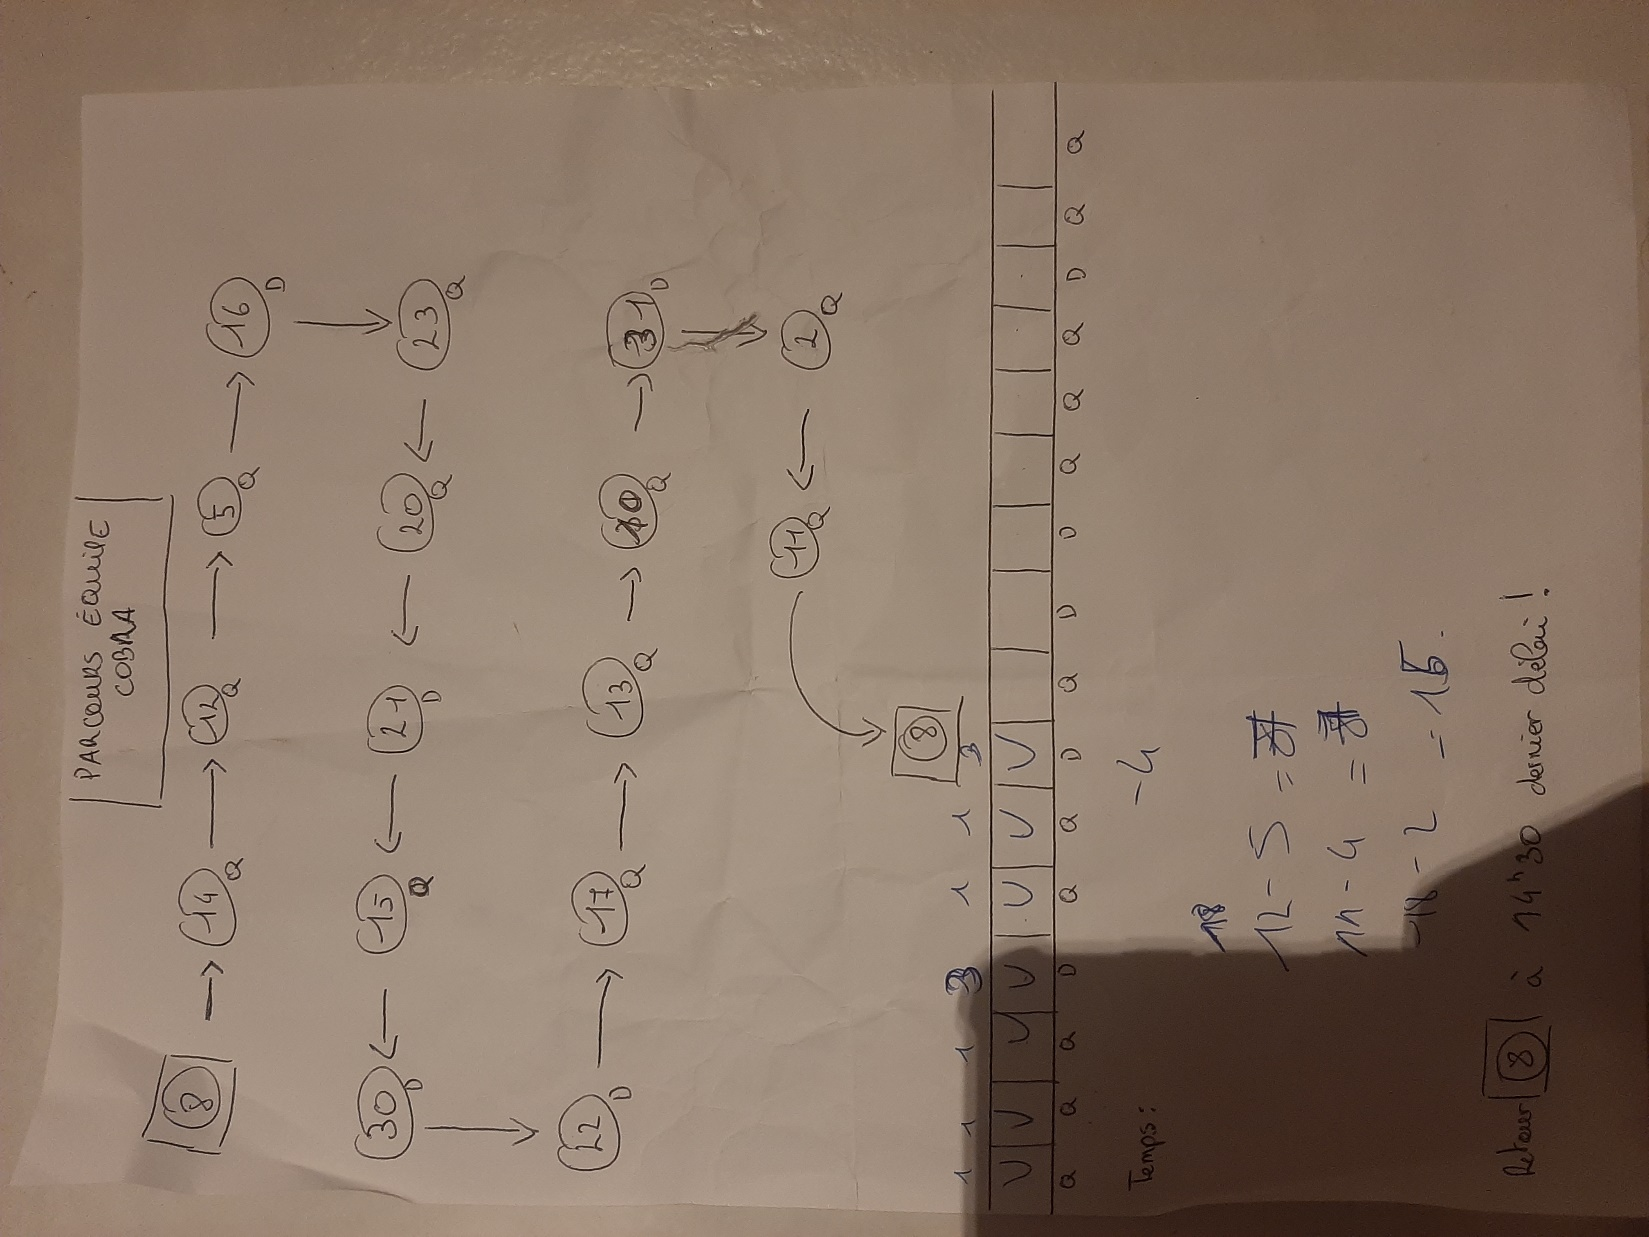 PARCOURS ÉQUIPE
COBRA
8 → 14 Q → 12 Q → 5 Q → 16 D
30 D ← 15 Q ← 21 D ← 20 Q ← 23 Q
22 D → 17 Q → 13 Q → 10 Q → 31 D
11 Q ← 2 Q
8
1 1 1 3 1 1 3
V V V V V V V
Q Q Q D Q Q D Q D D Q Q Q D Q Q
Temps: -4
18
12-5 =
11-4 =
18-2 = 15.
Retour 8 à 14h30 dernier délai!